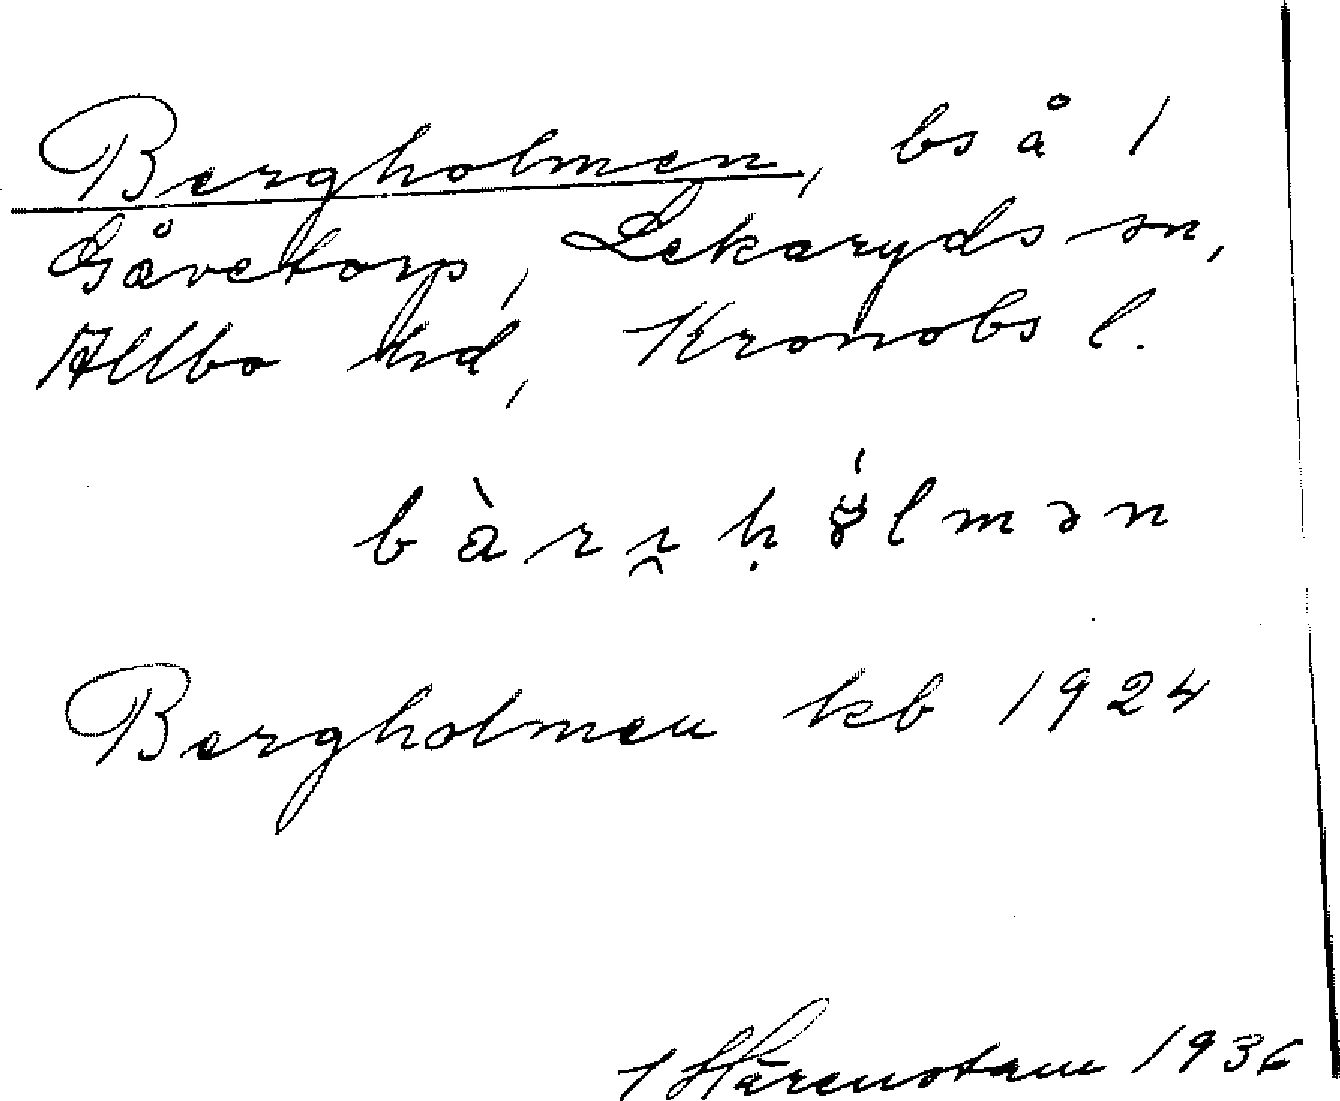 Bergholmen, bs å 1
Gåvetorp, Lekaryds sn,
Allbo hd, Kronobs l.
Bergholmen kb 1924
1936